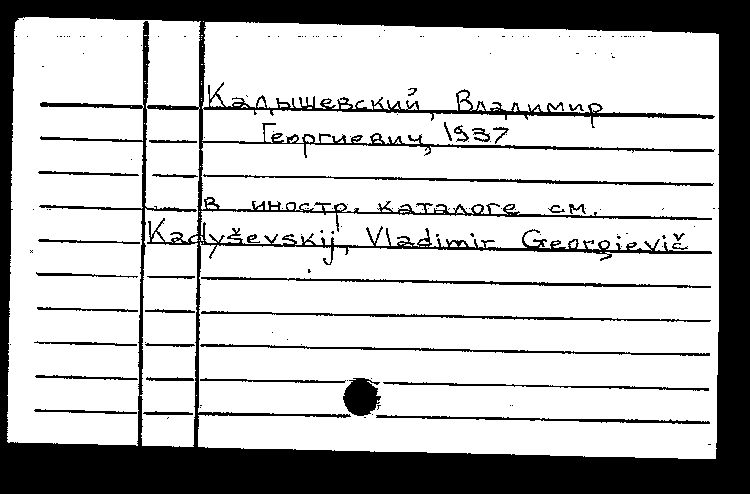 Кадышевский, Владимир
Георгиевич, 1937
в иностр. каталоге см.
Kadyševskij, Vladimir Georgievič